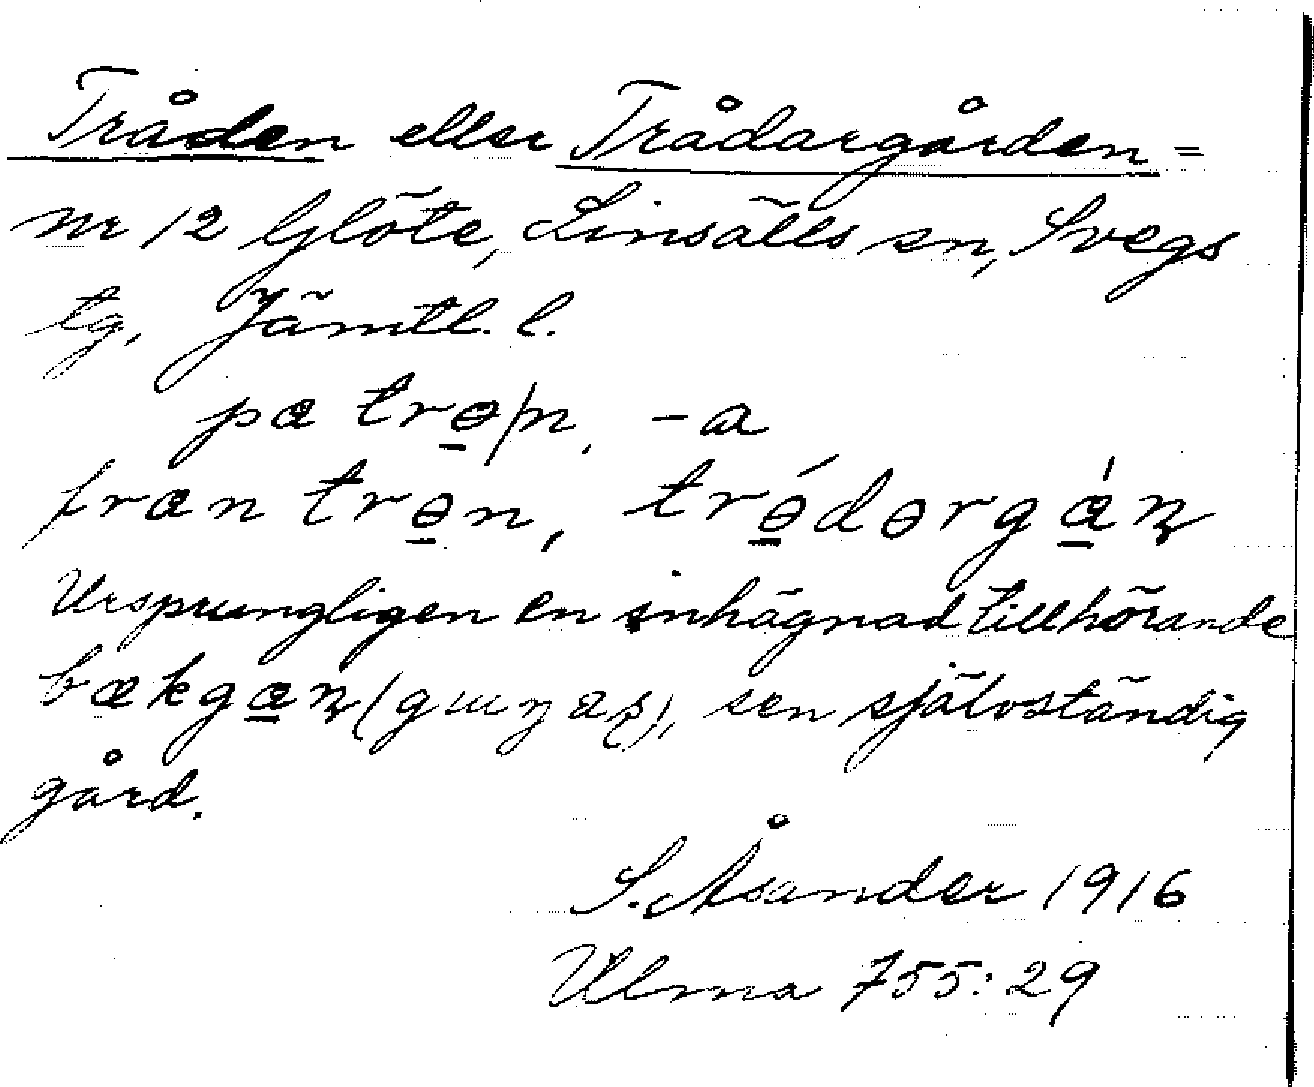 Tråden eller Trådargården =
Nr 12 Glöte, Linsälls sn, Svegs
tg, Jämtl. l.
pa trɵ̲/n, -a
fran trɵ̲n, trɵ̲́dɵrgá̲ꞃ
Ursprungligen en inhägnad tillhörande
bækga̲ꞃ sen självständig
gård.
S. Åsander 1916
Ulma 755:29